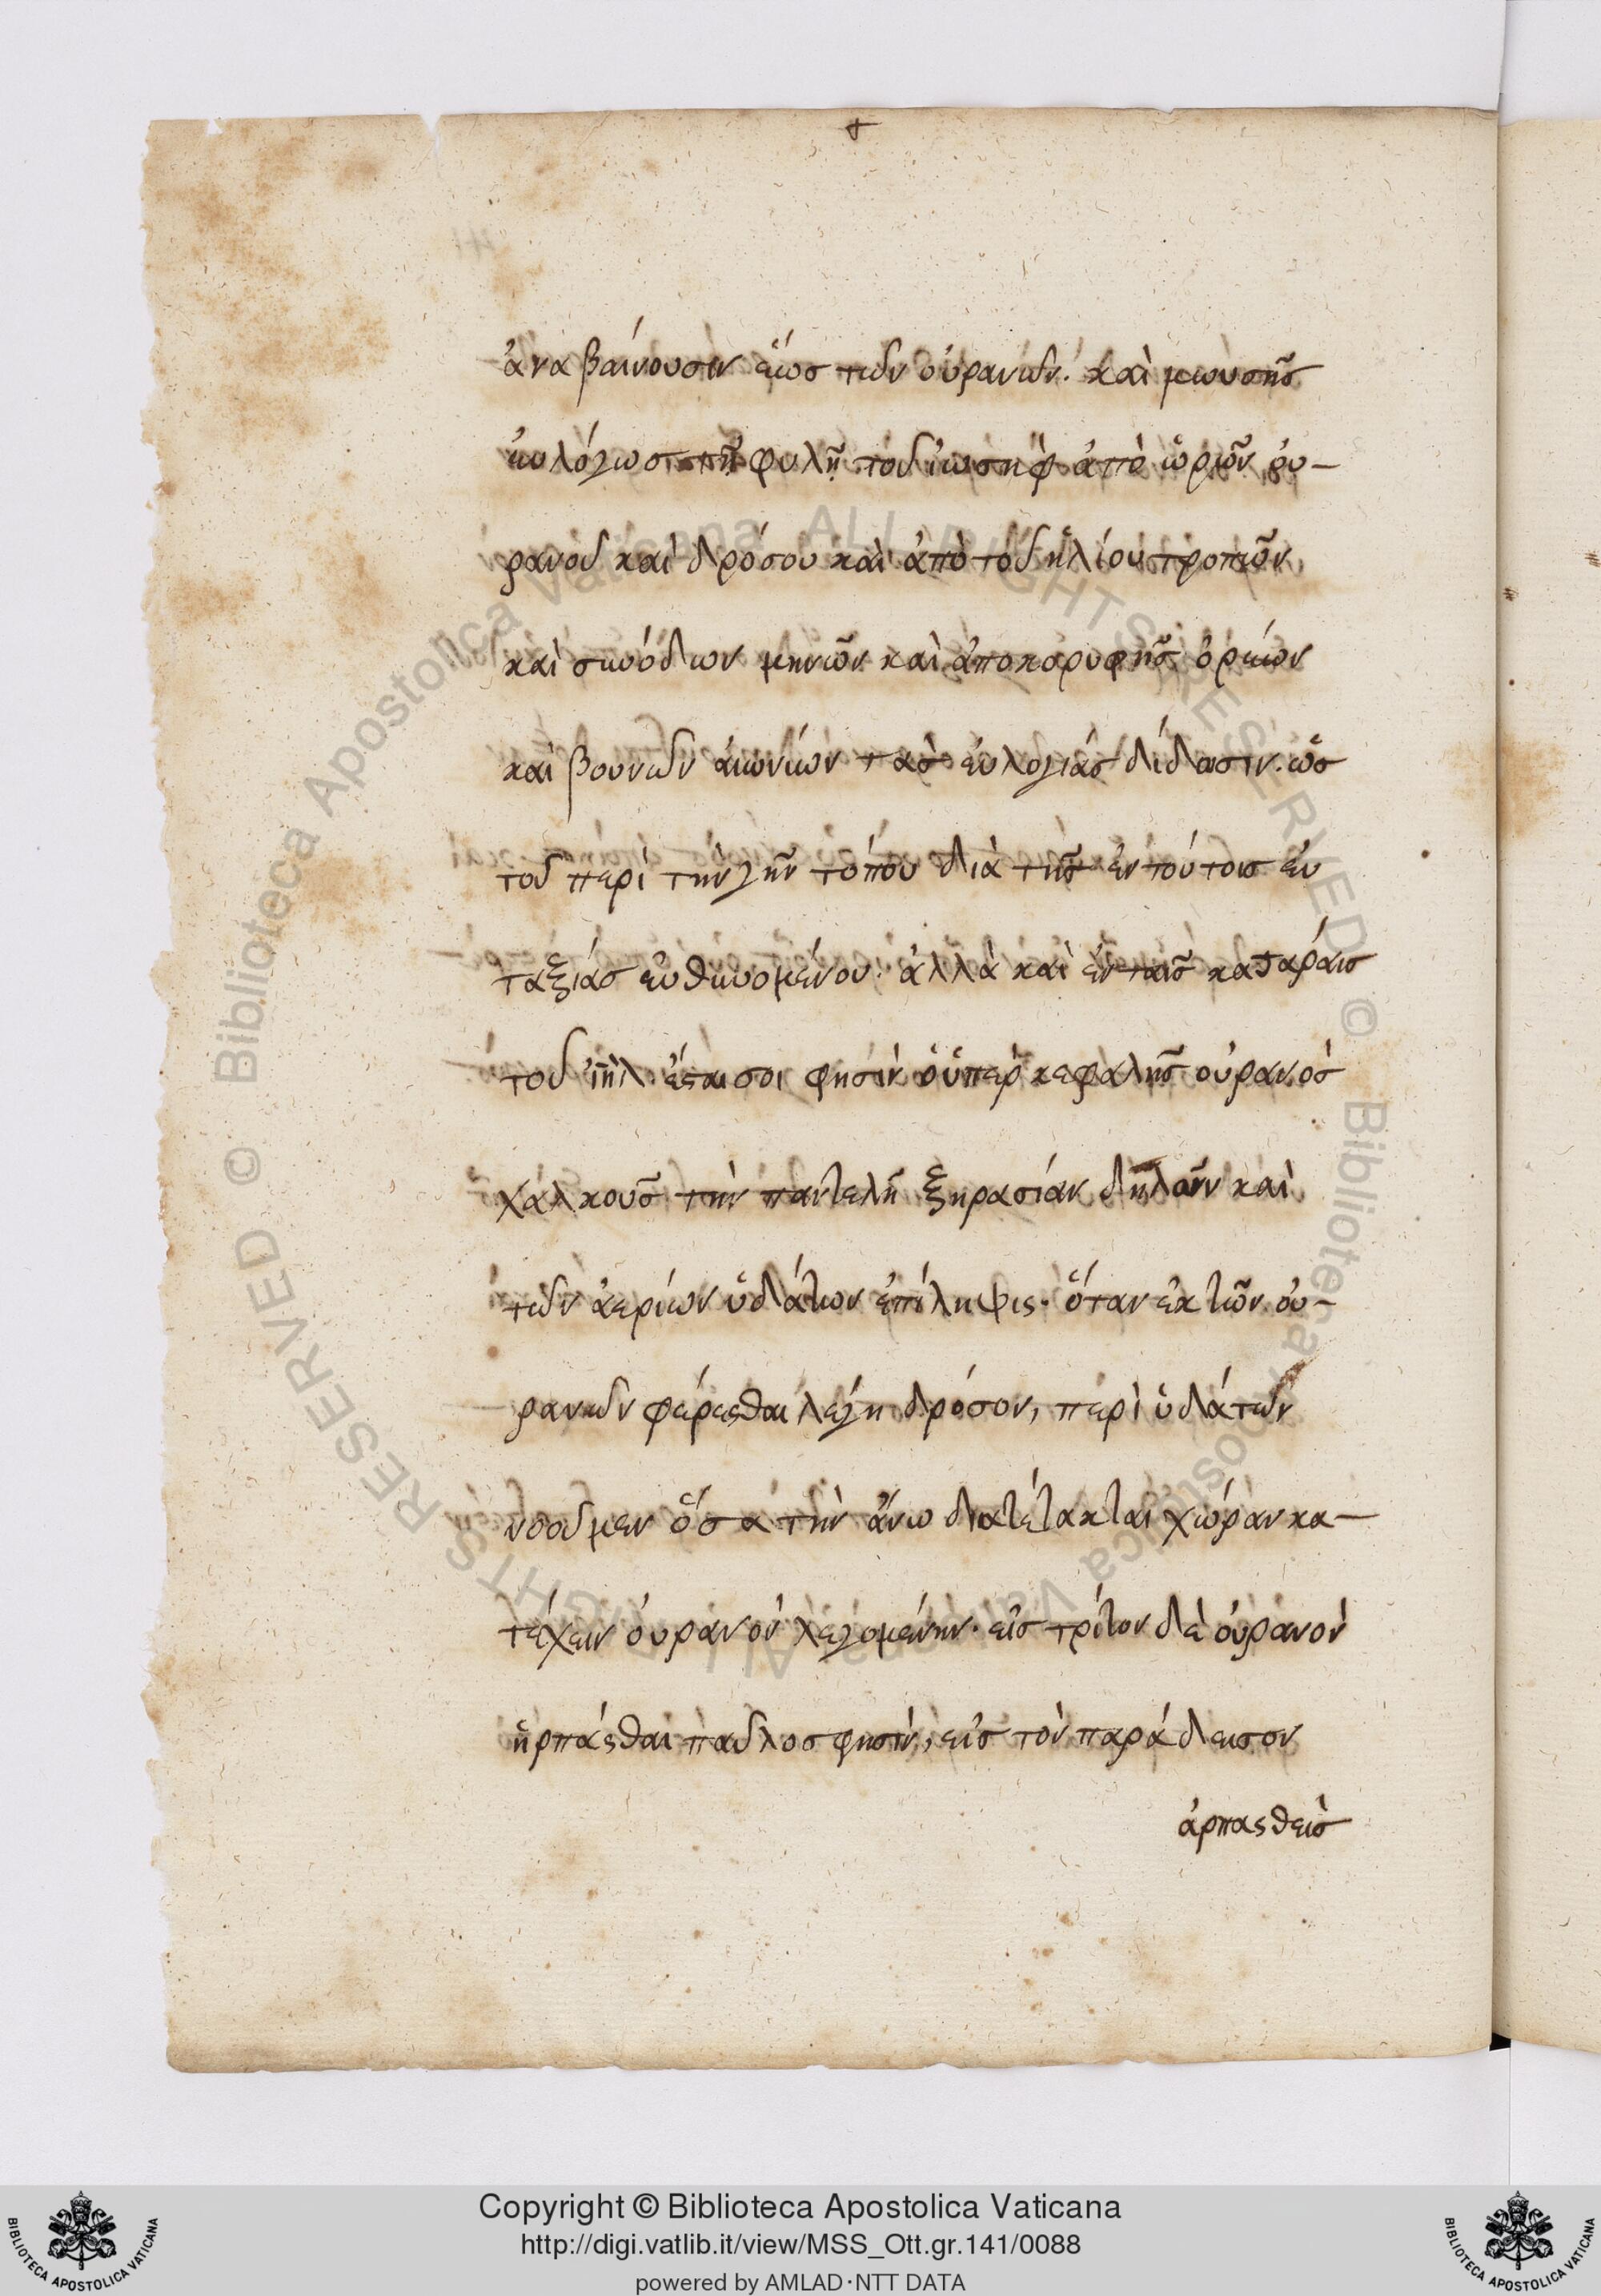 +
ἀναβαίνουσιν ἕως τῶν οὐρανῶν. καὶ μωυσῆς
εὐλόγωσ τῇ φυλῇ τοῦ ἰωσὴφ ἀπὸ ὡρῶν οὐ-
ρανοῦ καὶ δρόσου καὶ ἀπὸ τοῦ ἡλίου τροπῶν
καὶ συνόδων μηνῶν καὶ ἀποκορυφῆς ὀρέων
καὶ βουνῶν ἀεννάων τὰσ εὐλογίας δίδωσιν. ὡς
τοῦ περὶ τὴν γῆν τόπου διὰ τῆς ἐν τούτοις εὐ
ταξίας εὐθηνομένου. ἀλλὰ καὶ ἐν ταῖς κατάραις
τοῦ ἰηλ ἔσται σοι φησὶν ὁ ὑπὲρ κεφαλῆς οὐρανὸς
χαλκοῦς τὴν παντελῆ ξηρασίαν δηλῶν καὶ
τῶν ἀερίων ὑδάτων ἐπίληψις. ὅταν ἐκ τῶν οὐ-
ρανῶν φέρεσθαι λέγη δρόσον, περὶ ὑδάτων
νοοῦμεν ὅσα τὴν ἄνω διατέτακται χώραν κα-
τέχειν οὐρανὸν λεγομένην. εἰς τρίτον δὲ οὐρανὸν
ἡρπάσθαι παῦλος φησὶν, εἰς τὸν παράδεισον
ἁρπασθεὶς
Copyright © Biblioteca Apostolica Vaticana
http://digi.vatlib.it/view/MSS_Ott.gr.141/0088
powered by AMLAD·NTT DATA
BIBLIOTECA APOSTOLICA VATICANA
BIBLIOTECA APOSTOLICA VATICANA
© Biblioteca Apostolica Vaticana ALL RIGHTS RESERVED © Biblioteca Apostolica Vaticana ALL RIGHTS RESERVED